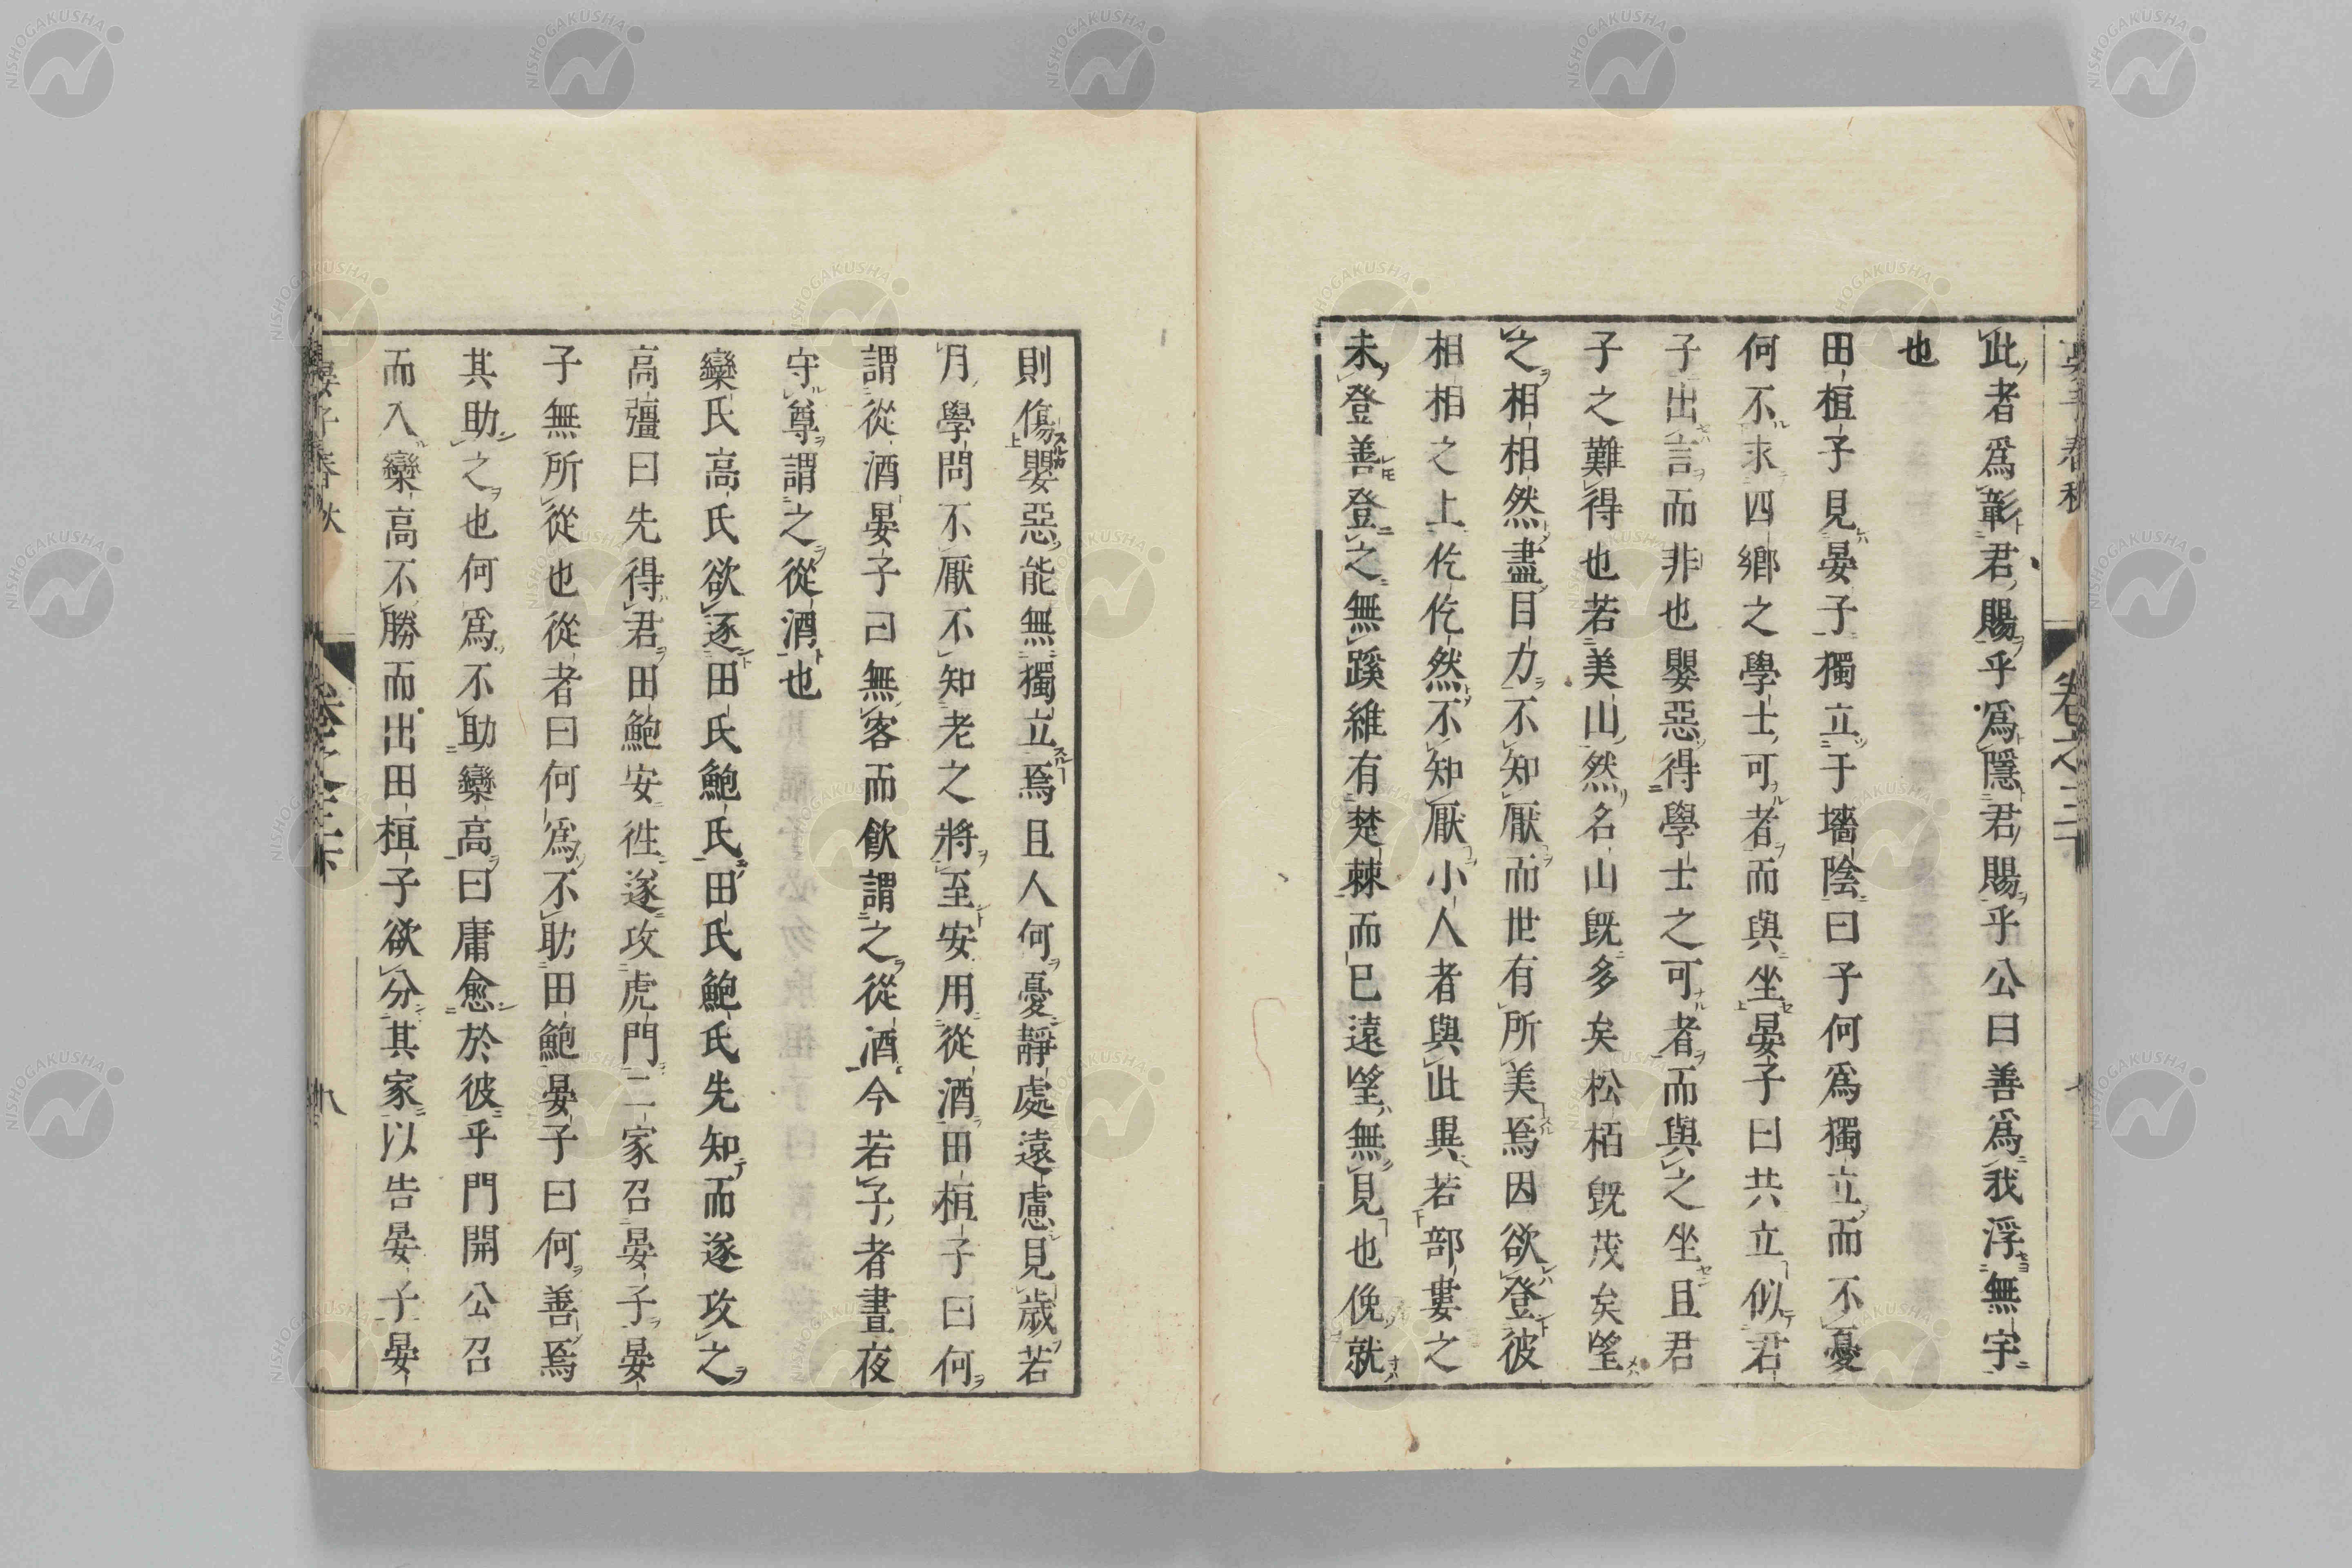 此者爲彰君賜乎爲隱君賜乎公曰善爲我浮無宇
也
田桓子見晏子獨立于墻陰曰子何爲獨立而不憂
何不求四鄉之學士可者而與坐晏子曰共立似君
子出言而非也嬰惡得學士之可者而與之坐且君
子之難得也若美山然名山旣多矣松栢旣茂矣望
之相相然盡目力不知厭而世有所美焉因欲登彼
相相之上仡仡然不知厭小人者與此異若部婁之
未登善登之無蹊維有楚棘而巳遠望無見也俛就
則傷嬰惡能無獨立焉且人何憂靜處遠慮見歲若
月學問不厭不知老之將至安用從酒田桓子曰何
謂從酒晏子曰無客而飮謂之從酒今若子者晝夜
守尊謂之從酒也
欒氏高氏欲逐田氏鮑氏田氏鮑氏先知而遂攻之
高彊曰先得君田鮑安往遂攻虎門二家召晏子晏
子無所從也從者曰何爲不助田鮑晏子曰何善焉
其助之也何爲不助欒高曰庸愈於彼乎門開公召
而入欒高不勝而出田桓子欲分其家以告晏子晏
晏子春秋
卷之六
八